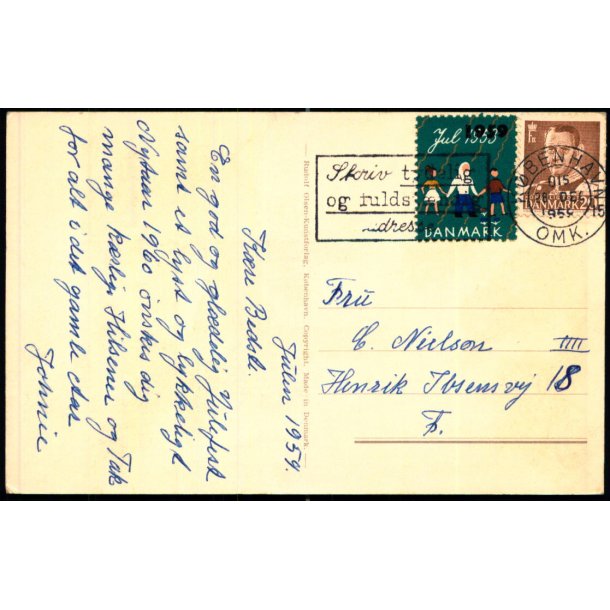 Julen 1959.
Kære Bedste.
En god og glædelig Julefest
samt et lyst og lykkeligt
Nytaar 1960 ønskes dig
mange kærlige Hilsener og Tak
for alt i det gamle Aar
Johnnie
Rudolf Olsens Kunstforlag, København. Copyright. Made in Denmark.
Jul 1959
DANMARK
DANMARK
Skriv
og fulds
dres
KØBENHAVN
OMK.
Fru
C. Nielsen
Henrik Ibsensvej 18 IIII
F.